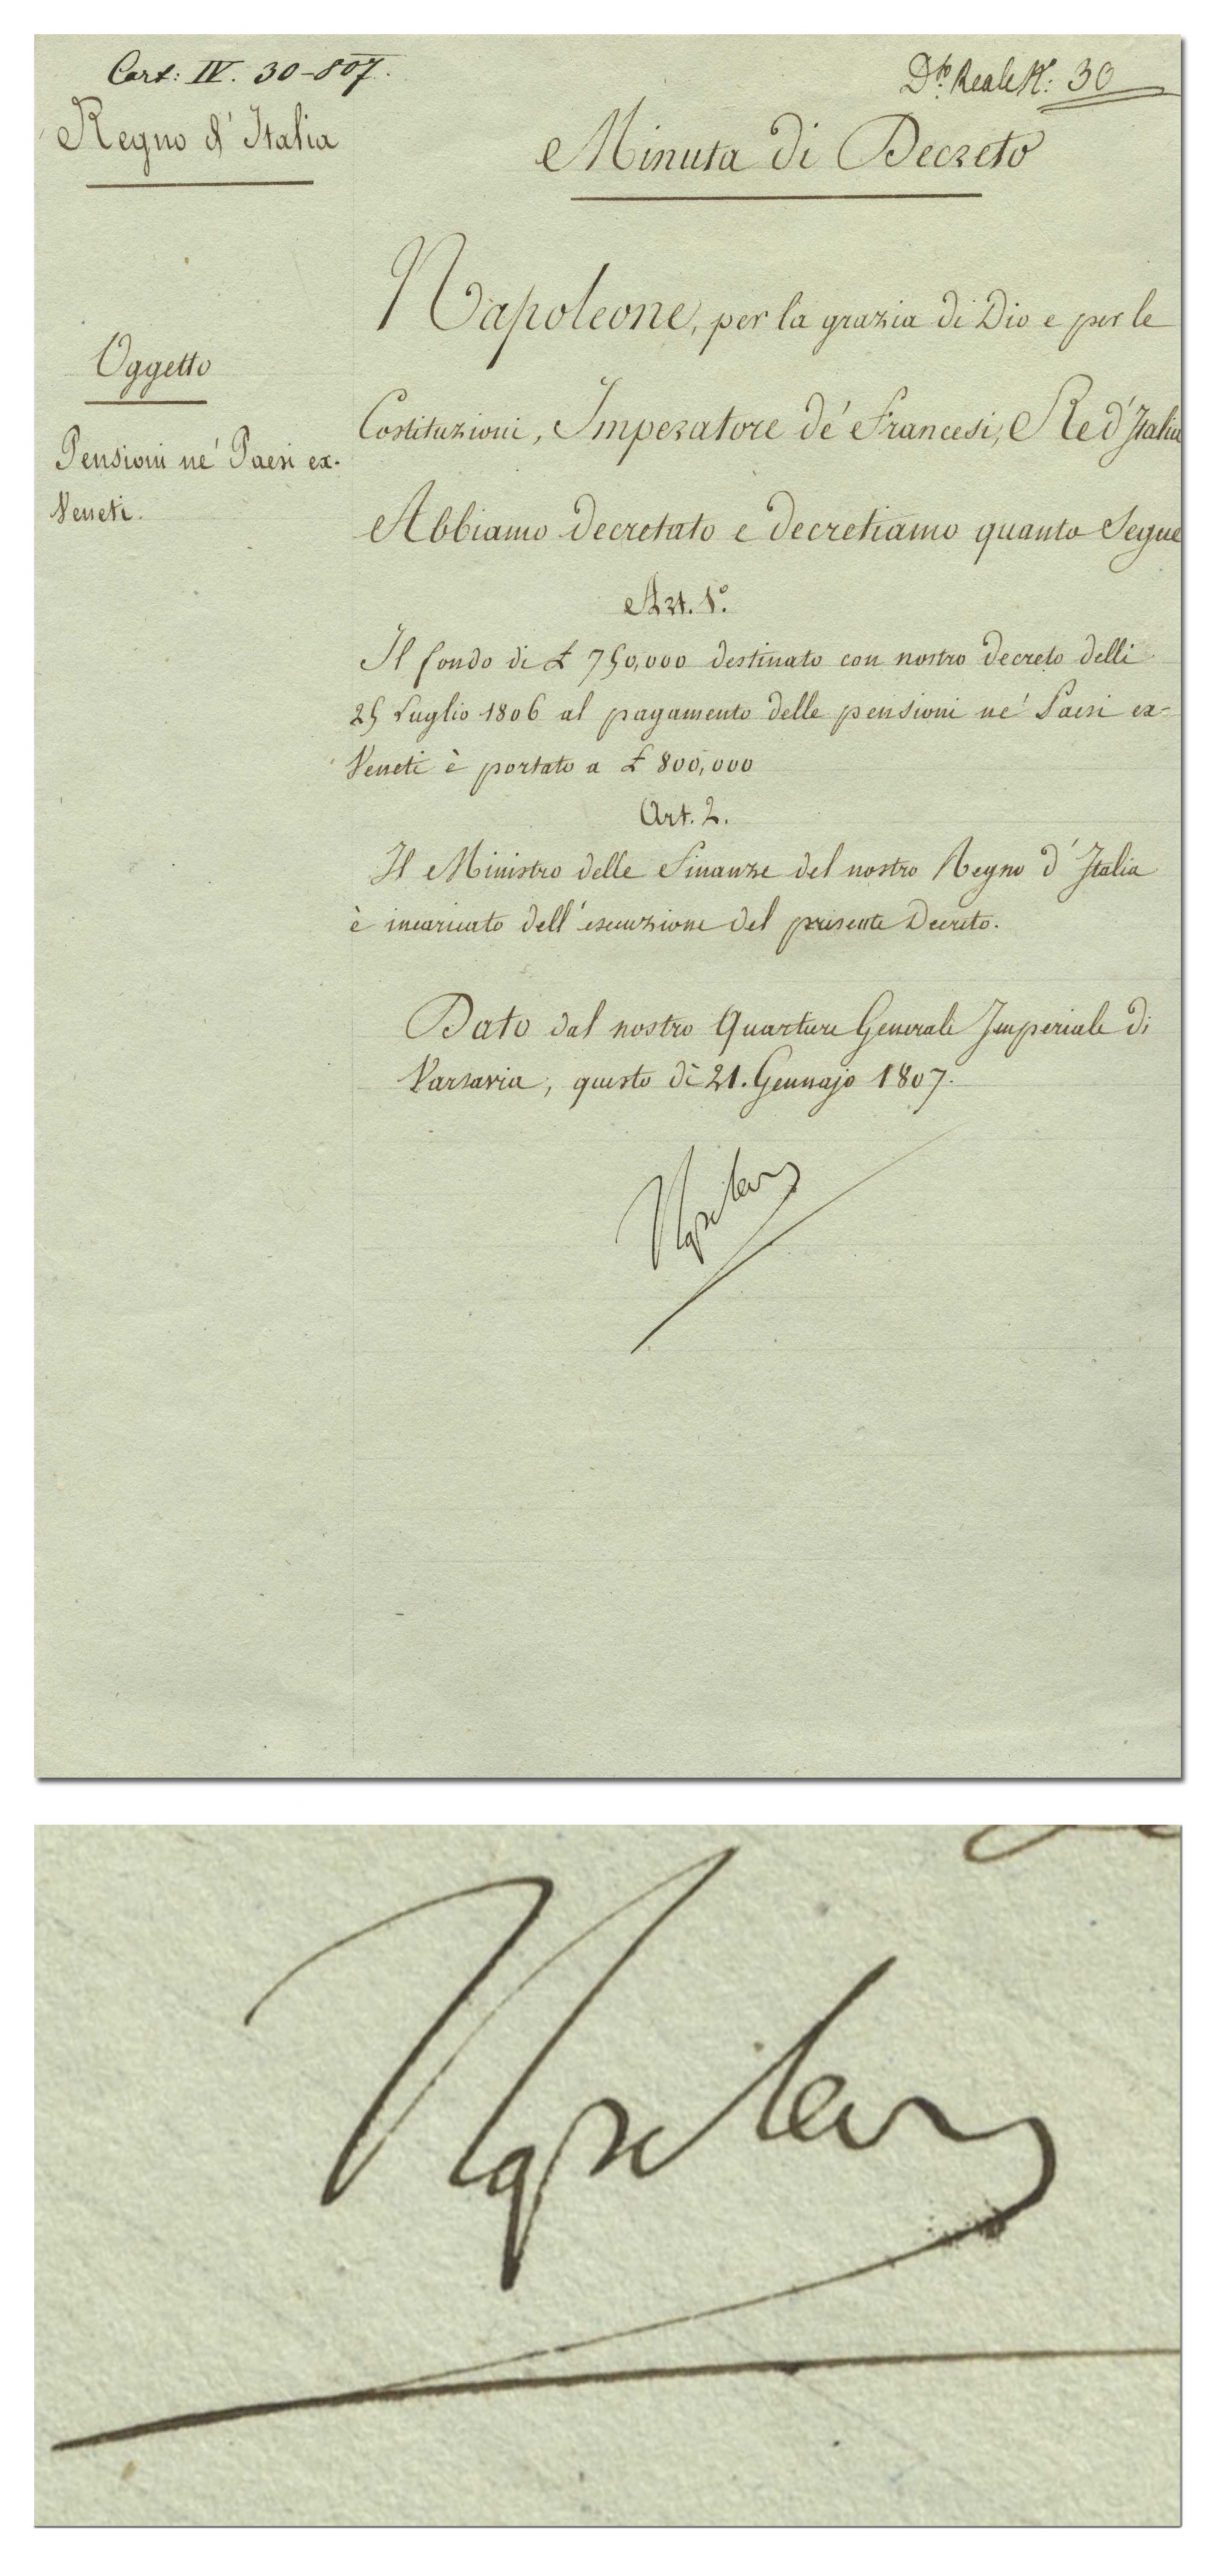 Cart: IV. 30-807.
Dto. Reale No: 30
Regno d'Italia
Minuta di Decreto
Napoleone, per la grazia di Dio e per le
Costituzioni, Imperatore de' Francesi, Re d'Italia
Oggetto
Pensioni ne' Paesi ex-
Veneti.
Abbiamo decretato e decretiamo quanto Segue
Art. 1.º
Il fondo di £ 750,000 destinato con nostro decreto delli
25 Luglio 1806 al pagamento delle pensioni ne' Paesi ex-
Veneti è portato a £ 800,000
Art. 2.
Il Ministro delle Finanze del nostro Regno d'Italia
è incaricato dell'esecuzione del presente Decreto.
Dato dal nostro Quartiere Generale Imperiale di
Varsavia, questo dì 21. Gennajo 1807.
Napoleon
Napoleon